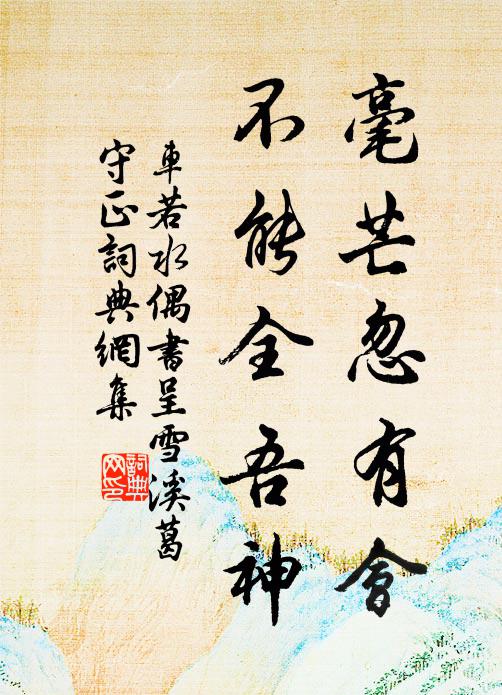 毫芒忽有會
不能全吾神
車若水偶書呈雪溪葛
守正詞典網集
詞典
网印